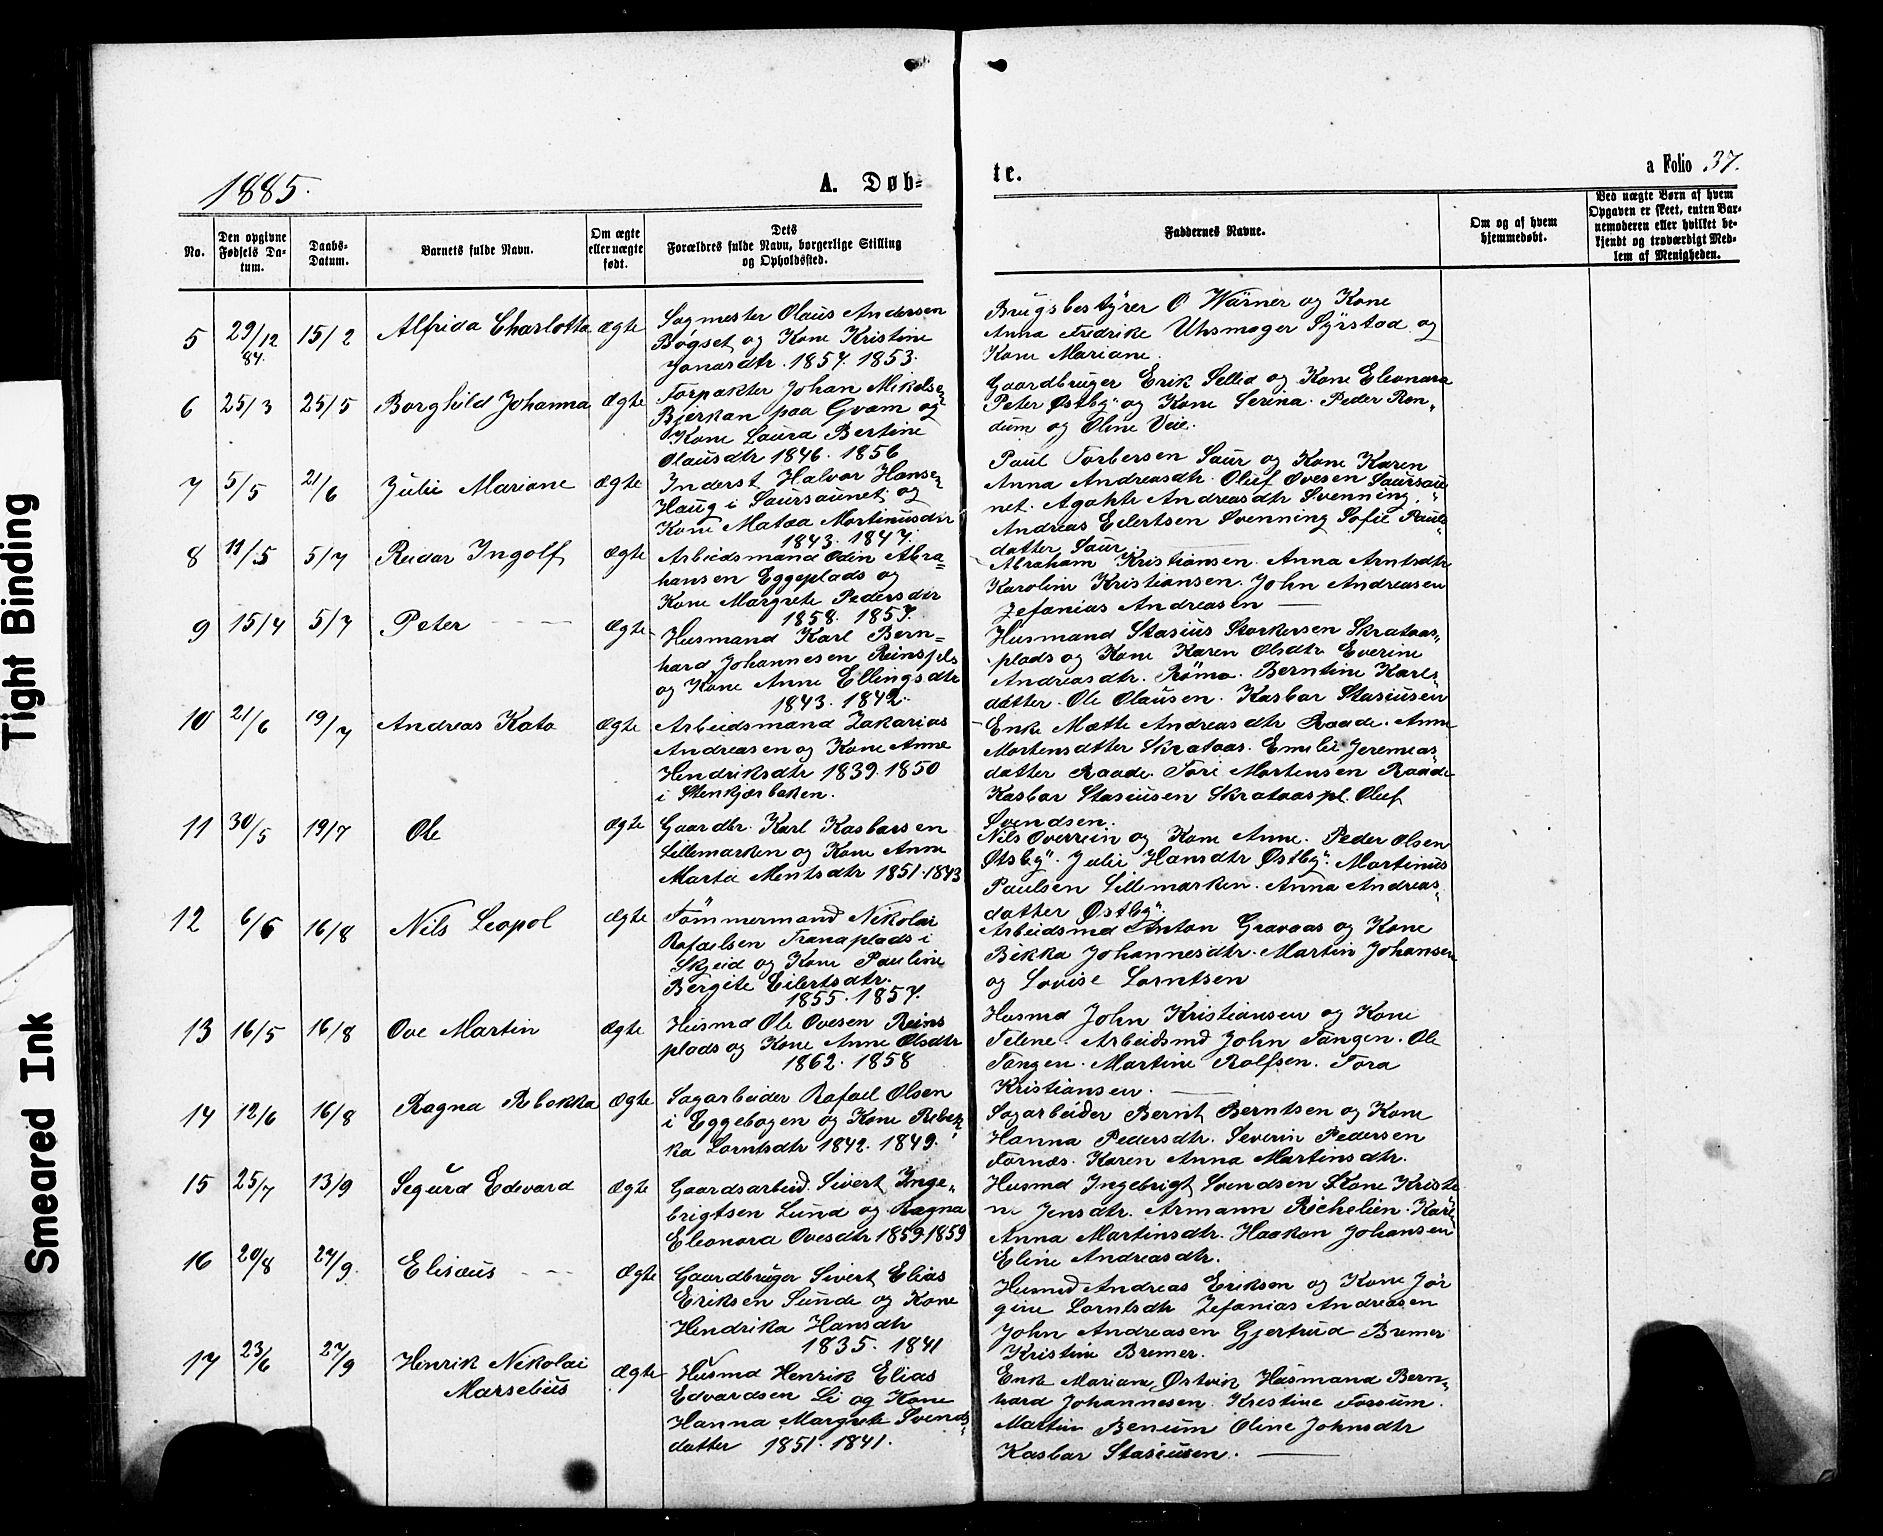 1885.
A. Døb-
te.
a Folio 37.
No.
Den opgivne
Fødsels Da-
tum.
Daabs-
Datum.
Barnets fulde Navn.
Om ægte
eller uægte
født.
Dets
Forældres fulde Navn, borgerlige Stilling
og Opholdssted.
Faddernes Navne.
Om og af hvem
hjemmedøbt.
Ved uægte Børn af hvem
Opgaven er skeet, enten Bar-
nemoderen eller hvilket be-
kjendt og troværdigt Med-
lem af Menigheden.
5 29/12 84. 15/2 Alfrida Charlotta ægte
Sagmester Olaus Andersen
Bøgset og Kone Kristine
Jonasdtr. 1857. 1853.
Brugsbestyrer O Wärner og Kone
Anna Fredrike Uhsmager Syrstad og
Kone Mariane.
6 25/3 25/5 Borghild Johanna Ægte
Forpakter Johan Mikelse-
Bjerkan paa Gvam og
Kone Laura Bertine
Olausdtr 1846. 1856
Gaardbruger Erik Sellid og Kone Eleonara
Peter Østby og Kone Serina. Peder Ron-
dum og Oline Veie.
7 5/5 21/6 Julie Mariane Ægte
Inderst Halvor Hanse-
Haug i Saursaunet og
Kone Matea Martinusdtr
1843. 1847.
Paul Torbersen Saur og Kone Karen
Anna Andreasdtr. Oluf Ovesen Saursau
net. Agathe Andreasdtr Svenning.
Andreas Eilertsen Svenning Sofie Pauls-
datter Saur.
8 11/5 5/7 Reidar Ingolf Ægte
Arbeidsmand Odin Abra-
hansen Eggeplads og
Kone Margrete Pedersdtr
1858. 1857.
Abraham Kristiansen. Anna Arntsdtr
Karoline Kristiansen. John Andreasen
Zefanias Andreasen
9 15/4 5/7 Peter Ægte
Husmand Karl Bern-
hard Johannesen Reinspls
og Kone Anne Ellingsdtr
1843. 1842.
Husmand Stasius Storkersen Skrataas-
plads og Kone Karen Olsdtr Everine
Andreasdtr. Römo. Berntine Karls-
datter. Ole Olausen. Kasbar Stasiusen
10 21/6 19/7 Andreas Kato Ægte
Arbeidsmand Zakarias
Andreasen og Kone Anne
Hendriksdtr 1839. 1850
i Stenkjærbaken.
Enke Mætte Andreasdtr Raade. Anne
Mortensdatter Skrataas. Emilie Jeremias
datter Raade. Tore Mortensen Raade
Kasbar Stasiusen Skrataaspl. Oluf
Svendsen.
11 30/5 19/7 Ole Ægte
Gaardbr. Karl Kasbarsen
Lillemarken og Kone Anne
Marta Mentsdtr 1851. 1843
Nils Overrein og Kone Anne. Peder Olsen
Østby. Julie Hansdtr Østby. Martinus
Paulsen Lillemarken. Anna Andreas-
datter Østby.
12 6/6 16/8 Nils Leopol Ægte
Tömmermand Nikolai
Rafaelsen Tranaplads i
Skjeid og Kone Pauline
Bergite Eilertsdtr.
1855. 1857.
Arbeidsmd Anton Gravaas og Kone
Bekka Johannesdtr. Martin Johansen
og Lovise Lorntsen
13 16/5 16/8 Ove Martin Ægte
Husmd Ole Ovesen Reins
plads og Kone Anne Olsdtr
1862. 1858
Husmd John Kristiansen og Kone
Telene. Arbeidsmd John Tangen. Ole
Tangen. Martine Rolfsen. Tora
Kristiansen.
14 12/6 16/8 Ragna Rebekka Ægte
Sagarbeider Rafael Olsen
i Eggebogen og Kone Rebek-
ka Lorntsdtr 1842. 1849.
Sagarbeider Bernt Berntsen og Kone
Hanna Pedersdtr. Severin Pedersen
Fornæs. Karen Anna Martinsdtr.
15 25/7 13/9 Segurd Edevard Ægte
Gaardsarbeid. Sivert Inge-
brigtsen Lund og Ragna
Eleonora Ovesdtr 1859. 1859
Husmd Ingebrigt Svendsen Kone Kriste
ne Jensdtr. Armann Richelien. Kare-
Anna Martinsdtr. Haakon Johansen
Eline Andreasdtr.
16 20/8 27/9. Elisæus Ægte
Gaardbruger Sivert Elias
Eriksen Sunde og Kone
Hendrika Hansdtr
1835. 1841
Husmd Andreas Eriksen og Kone Jør
gine Lorntsdtr Zefanias Andreasen
John Andreasen Gjertrud Bremer
Kristine Bremer.
17 23/6 27/9 Henrik Nikolai
Marselius Ægte
Husmd Henrik Elias
Edvardsen Li og Kone
Hanna Margrete Svends-
datter 1851. 1841.
Enke Mariane Østvik Husmand Bern-
hard Johannesen. Kristine Fossum.
Martin Benum Oline Johnsdtr
Kasbar Stasiusen.
Tight Binding
Smeared Ink